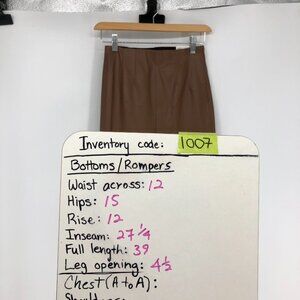 Inventory code: 1007
Bottoms/Rompers
Waist across: 12
Hips: 15
Rise: 12
Inseam: 27 1/4
Full length: 39
Leg opening: 4 1/2
Chest (A to A):